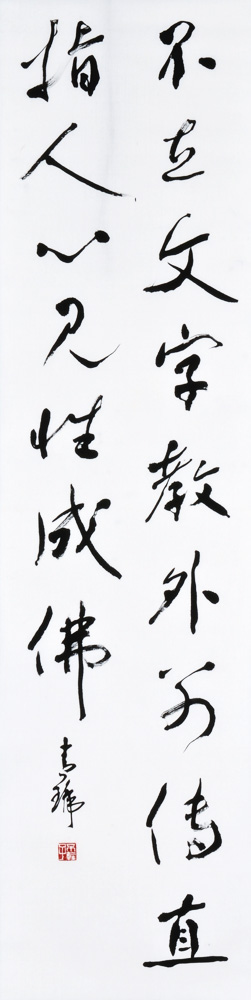 不立文字教外别传直
指人心见性成佛